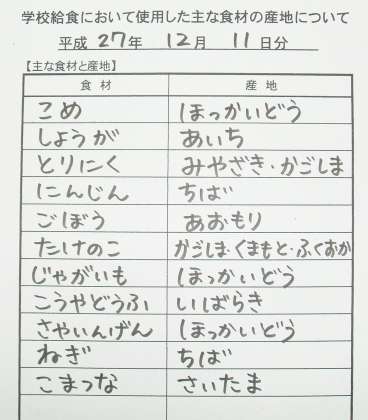 学校給食において使用した主な食材の産地について
平成 27年 12月 11日分
【主な食材と産地】
食材 産地
こめ ほっかいどう
しょうが あいち
とりにく みやざき・かごしま
にんじん ちば
ごぼう あおもり
たけのこ かごしま・くまもと・ふくおか
じゃがいも ほっかいどう
こうやどうふ いばらき
さやいんげん ほっかいどう
ねぎ ちば
こまつな さいたま